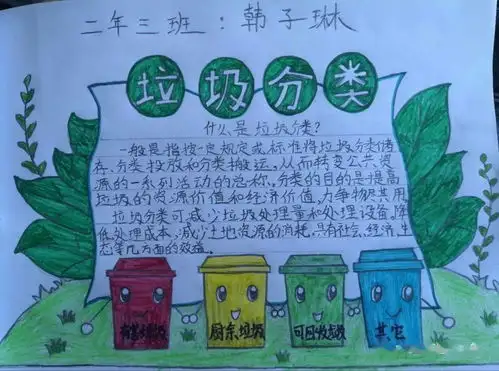 二年三班：韩子琳
垃圾分类
什么是垃圾分类?
一般是指按一定规定或标准将垃圾分类储
存、分类投放和分类搬运,从而转变公共资
源的一系列活动的总称。分类的目的是提高
垃圾的资源价值和经济价值,力争物尽其用。
垃圾分类可减少垃圾处理量和处理设备,降
低处理成本,减少土地资源的消耗,具有社会、经济、生
态等几方面的效益。
有害垃圾
厨余垃圾
可回收垃圾
其它